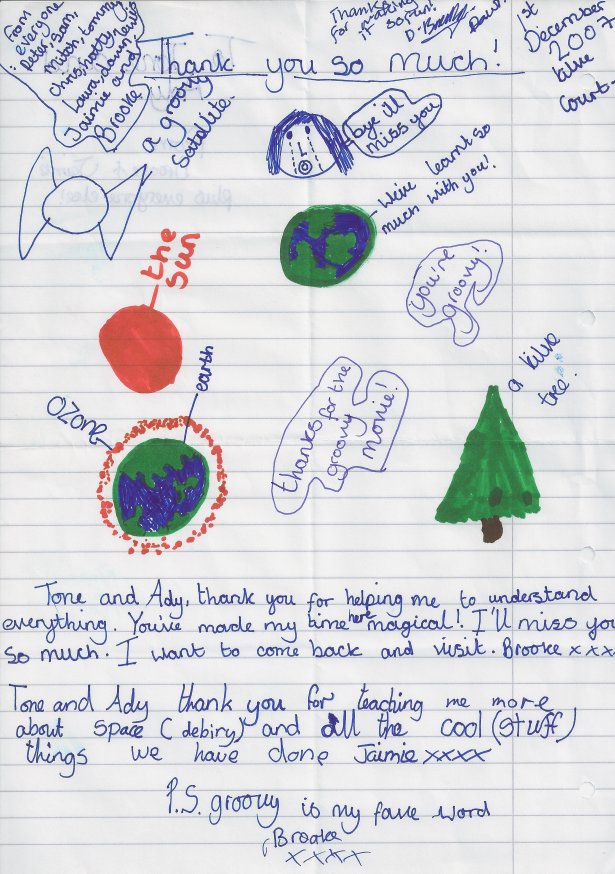 from
everyone
Peter, Sam,
Mitch, Tommy,
Chris, Natty,
Laura, dawn,
Jaimie and
Brooke
Thanks
for making
it so fun!
D. Bradley
David!
1st
December
2007
blue
Court.
Thank you so much!
a groovy
satallite.
bye i'll
miss you
We've learnt so
much with you!
the
sun
you're
groovy!
OZONE
earth
thanks for the
groovy
monie!
a blue
tree.
Tone and Ady, thank you for helping me to understand
everything. You've made my time here magical! I'll miss you
so much. I want to come back and visit. Brooke x x x
Tone and Ady thank you for teaching me more
about space (debiry) and all the cool (stuff)
things we have done Jaimie xxxx
P.S. groovy is my fave word
Brooke
xxxx